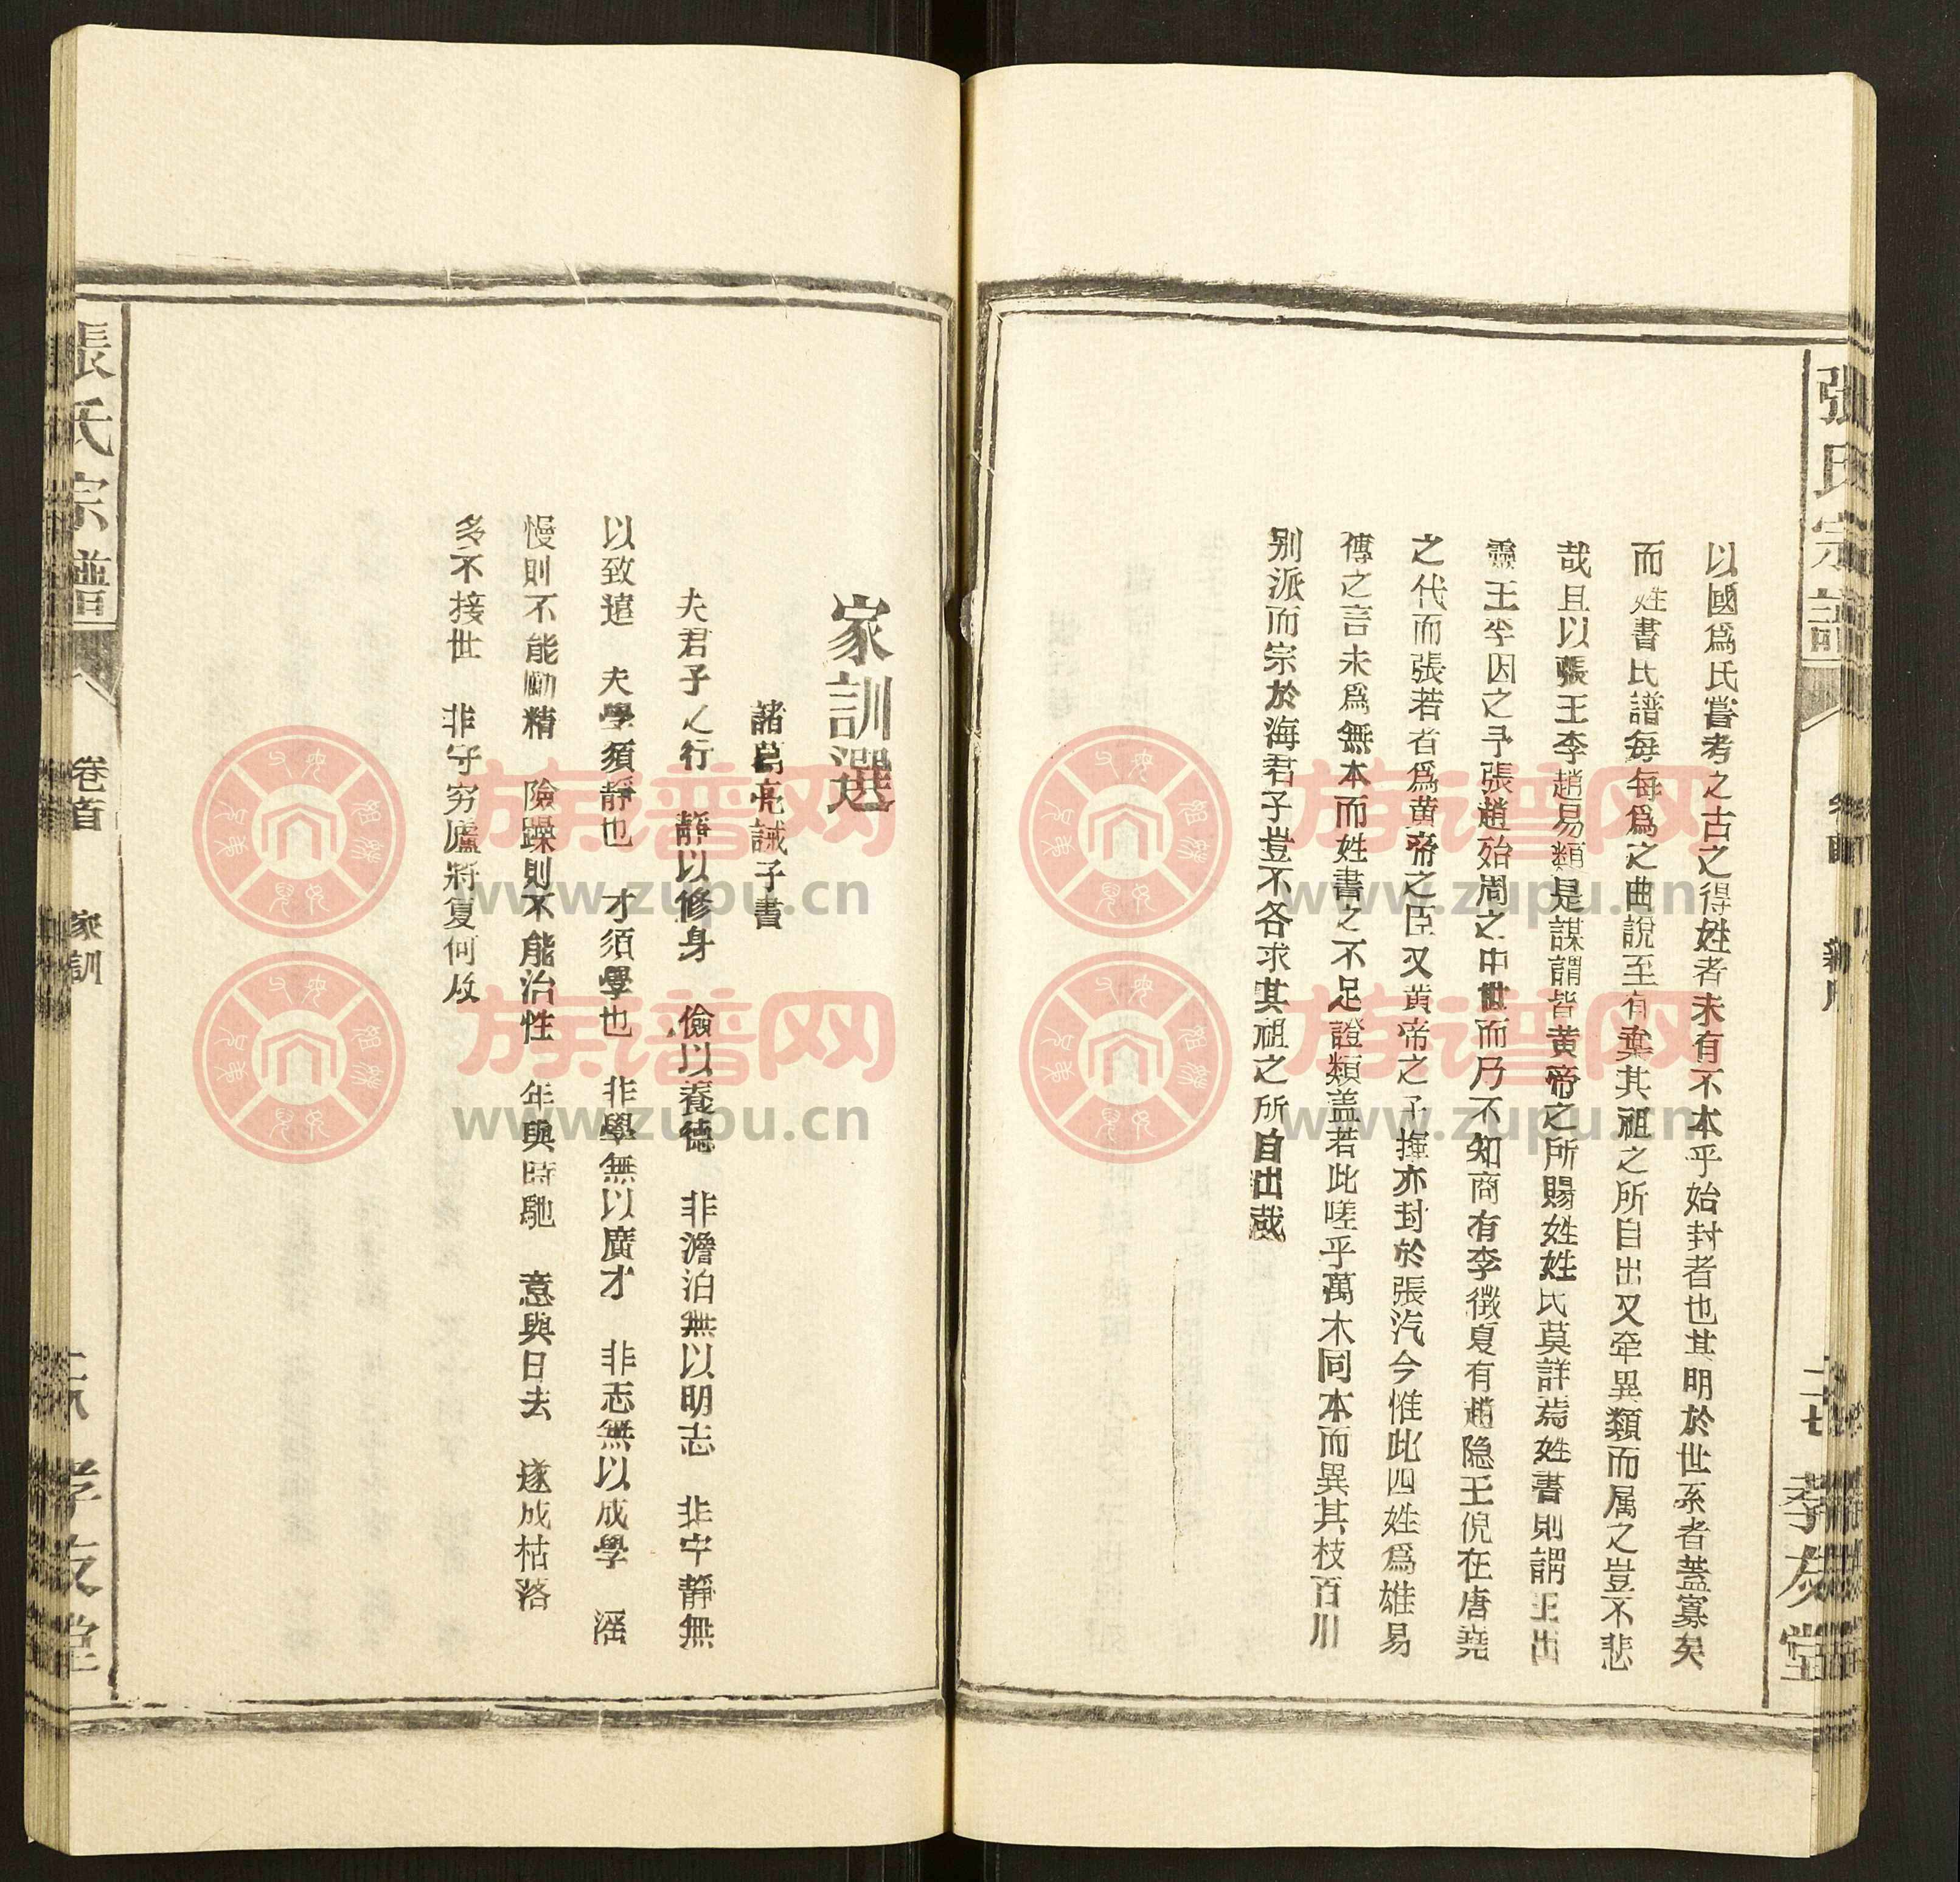 張氏宗譜
孝友堂
以國爲氏嘗考之古之得姓者未有不本乎始封者也其明於世系者蓋寡矣
而姓書氏譜每每爲之曲說至有棄其祖之所自出又牽異類而属之豈不悲
哉且以張王李趙易類是謀謂皆黄帝之所賜姓姓氏莫詳焉姓書則謂王出
靈王李因之予張趙殆周之中世而乃不知商有李徵夏有趙隐王倪在唐堯
之代而張若者爲黄帝之臣又黄帝之子揮亦封於張汽今惟此四姓爲雄易
傳之言未爲無本而姓書之不足證類盖若此嗟乎萬木同本而異其枝百川
别派而宗於海君子豈不各求其祖之所自出哉
家訓選
諸葛亮誡子書
夫君子之行 靜以修身 儉以養德 非澹泊無以明志 非寧靜無
以致遠 夫學須靜也 才須學也 非學無以廣才 非志無以成學 滛
慢則不能勵精 險躁則不能治性 年與時馳 意與日去 遂成枯落
多不接世 非守穷廬將复何及
張氏宗譜
卷首
家訓
孝友堂
族谱网
www.zupu.cn
族谱网
www.zupu.cn
族谱网
www.zupu.cn
族谱网
www.zupu.cn